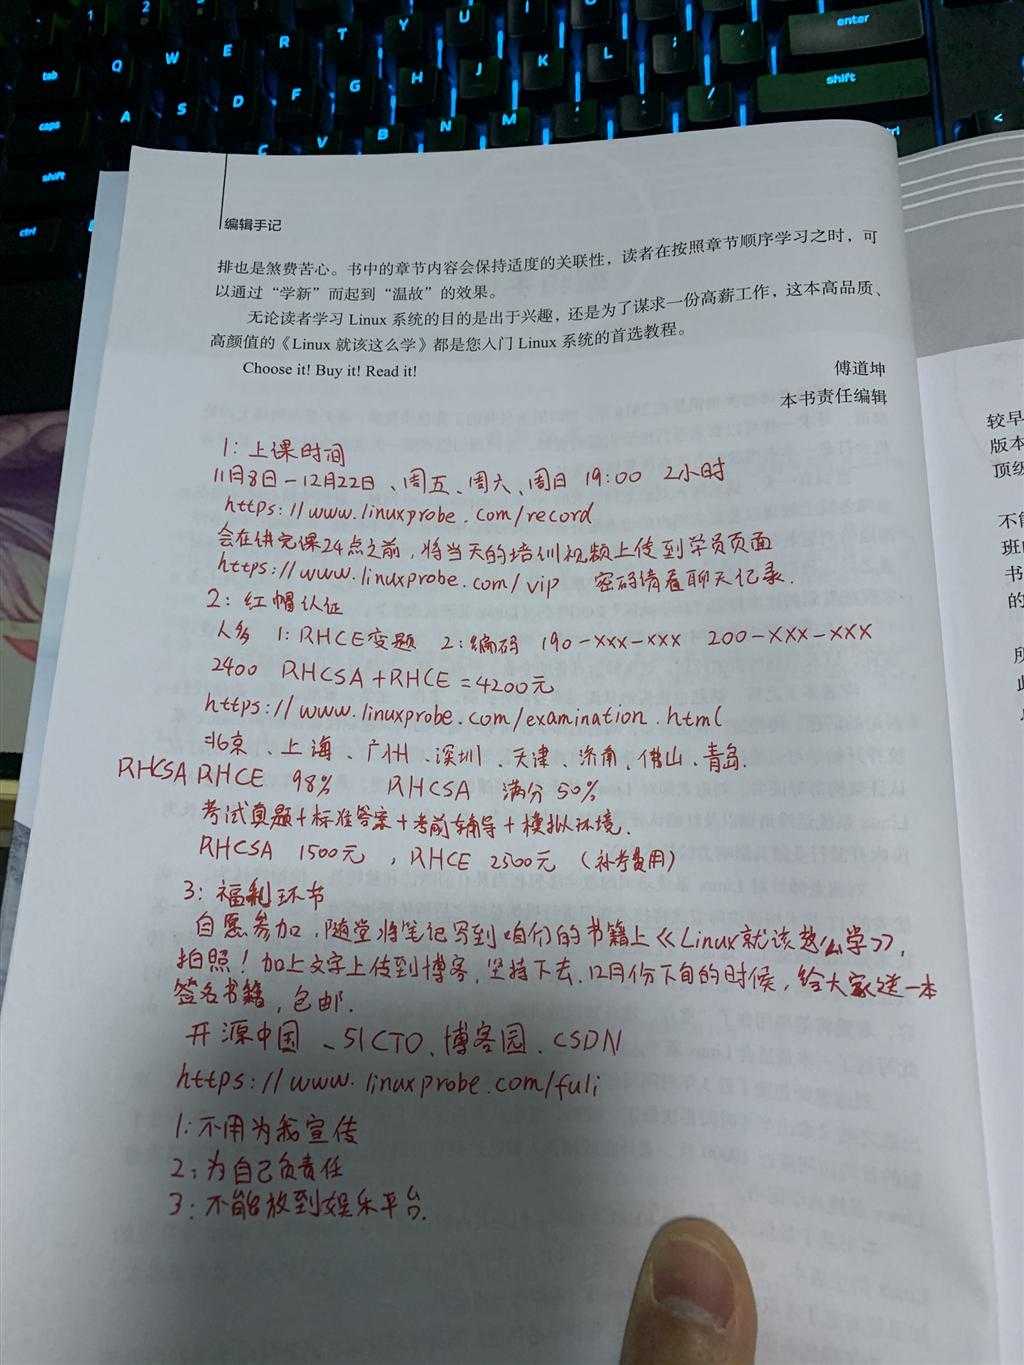 编辑手记
排也是煞费苦心。书中的章节内容会保持适度的关联性，读者在按照章节顺序学习之时，可
以通过“学新”而起到“温故”的效果。
无论读者学习 Linux 系统的目的是出于兴趣，还是为了谋求一份高薪工作，这本高品质、
高颜值的《Linux 就该这么学》都是您入门 Linux 系统的首选教程。
Choose it! Buy it! Read it!
傅道坤
本书责任编辑
1: 上课时间
11月8日-12月22日、周五、周六、周日 19:00 2小时
https://www.linuxprobe.com/record
会在讲完课24点之前，将当天的培训视频上传到学员页面
https://www.linuxprobe.com/vip 密码请看聊天记录.
2: 红帽认证
人多 1: RHCE变题 2: 编码 190-XXX-XXX 200-XXX-XXX
2400 RHCSA+RHCE=4200元
https://www.linuxprobe.com/examination.html
北京、上海、广州、深圳、天津、济南、佛山、青岛.
RHCSA RHCE 98% RHCSA 满分 50%
考试真题+标准答案+考前辅导+模拟环境.
RHCSA 1500元，RHCE 2500元（补考费用）
3: 福利环节
自愿参加，随堂将笔记写到咱们的书籍上《Linux就该怎么学》，
拍照！加上文字上传到博客，坚持下去，12月份下旬的时候，给大家送一本
签名书籍，包邮.
开源中国、51CTO、博客园、CSDN
https://www.linuxprobe.com/fuli
1: 不用为我宣传
2: 为自己负责任
3: 不能放到娱乐平台.
较早
版本
顶级
不能
班
书
的
所